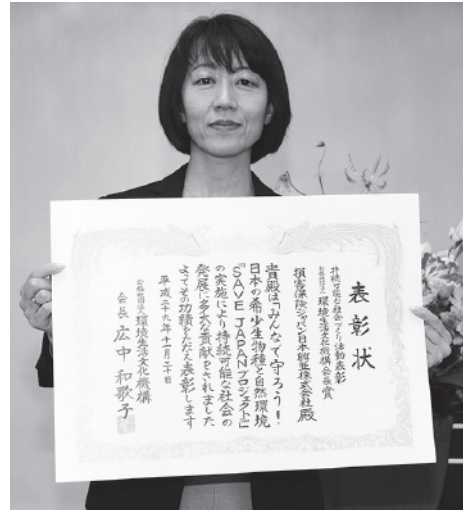 表彰状
持続可能な社会づくり活動表彰
公益社団法人環境生活文化機構会長賞
損害保険ジャパン日本興亜株式会社殿
貴殿は「みんなで守ろう!
日本の希少生物種と自然環境
『SAVE JAPANプロジェクト』」
の実施により持続可能な社会の
発展に多大な貢献をされました
よってその功績をたたえ表彰します
平成二十九年十一月二十日
公益社団法人環境生活文化機構
会長 広中和歌子